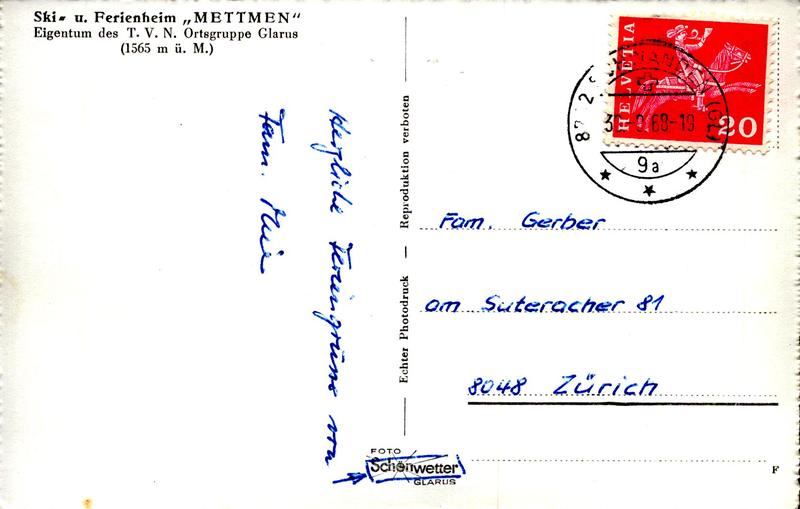 Ski- u. Ferienheim „METTMEN"
Eigentum des T. V. N. Ortsgruppe Glarus
(1565 m ü. M.)
Herzliche Feriengrüsse von
Fam.
Echter Photodruck — Reproduktion verboten
HELVETIA
20
9a
Fam. Gerber
am Suteracher 81
8048 Zürich
FOTO
Schönwetter
GLARUS
F